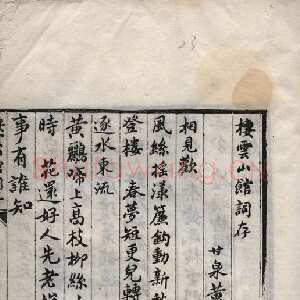 23
棲雲山館詞存
甘泉黃
相見歡
風絲揺漾簾鉤動新
登樓 春夢短更兒轉
逐水東流
黃鸝啼上高枝柳絲
時 花還好人先老
事有誰知